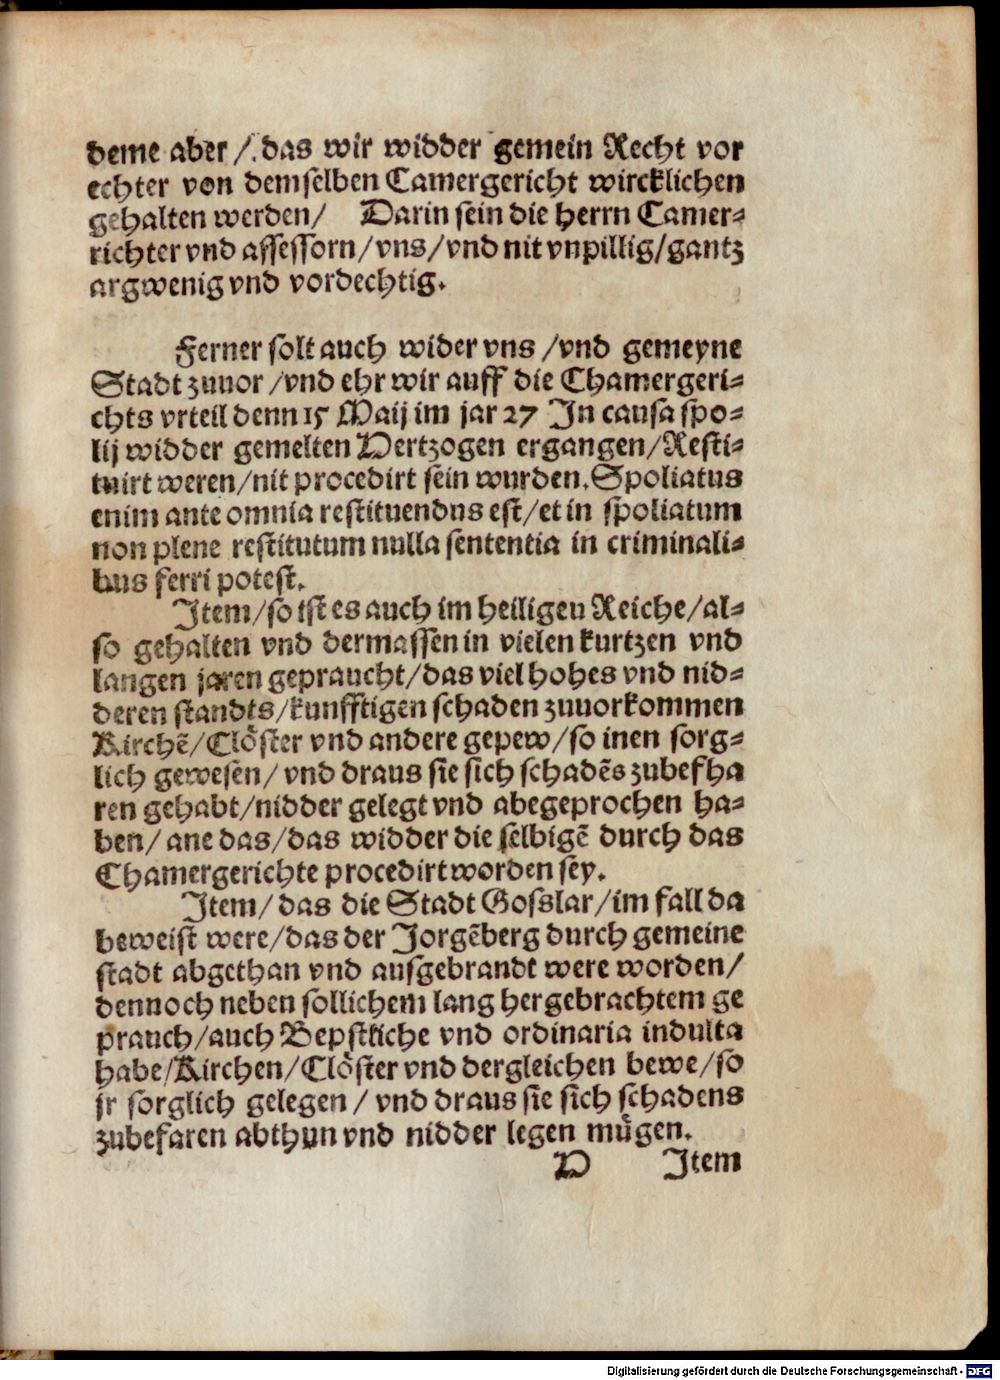 deme aber /. das wir widder gemein Recht vor
echter von demselben Camergericht wircklichen
gehalten werden/ Darin sein die herrn Camer=
richter vnd assessorn/vns/vnd nit vnpillig/gantz
argwenig vnd vordechtig.
Ferner solt auch wider vns /vnd gemeyne
Stadt zuuor /vnd ehr wir auff die Chamergeri=
chts vrteil denn 15 Maij im jar 27 In causa spo=
lij widder gemelten Hertzogen ergangen/Resti=
tuirt weren/nit procedirt sein wurden. Spoliatus
enim ante omnia restituendus est/et in spoliatum
non plene restitutum nulla sententia in criminali=
bus ferri potest.
Item/so ist es auch im heiligen Reiche/al=
so gehalten vnd dermassen in vielen kurtzen vnd
langen jaren gepraucht/das viel hohes vnd nid=
deren standts/kunfftigen schaden zuuorkommen
Kirchē/Clöster vnd andere gepew/so inen sorg=
lich gewesen/ vnd draus sie sich schadēs zubefha
ren gehabt/nidder gelegt vnd abegeprochen ha=
ben/ ane das/das widder die selbigē durch das
Chamergerichte procedirt worden sey.
Item/ das die Stadt Gosslar/im fall da
beweist were/das der Jorgēberg durch gemeine
stadt abgethan vnd ausgebrandt were worden/
dennoch neben sollichem lang hergebrachtem ge
prauch/auch Bepstliche vnd ordinaria indulta
habe/Kirchen/Clöster vnd dergleichen bewe/so
jr sorglich gelegen / vnd draus sie sich schadens
zubefaren abthun vnd nidder legen mügen.
D Item
Digitalisierung gefördert durch die Deutsche Forschungsgemeinschaft - DFG